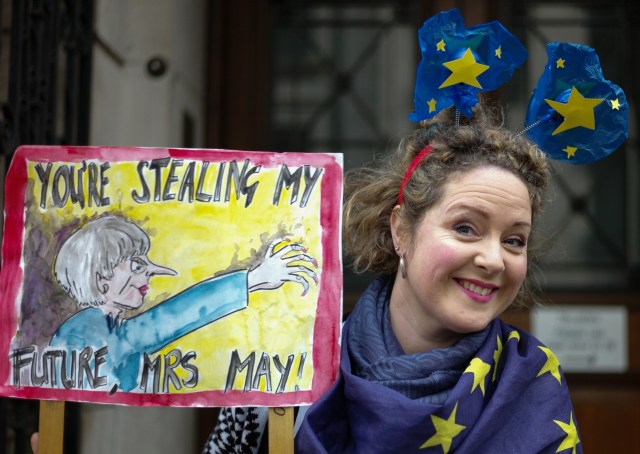 YOU'RE STEALING MY
FUTURE, MRS MAY!